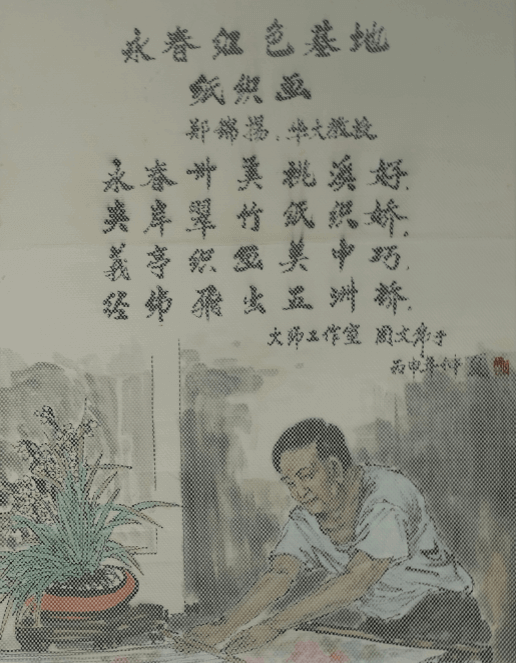 永春红色基地
纸织画
郑锦扬、华大教授
永春卅美桃溪好.
夹岸翠竹纸织娇.
义亭织画美中巧.
经纬飞出五洲桥.
大师工作室 周文虎
丙申年仲